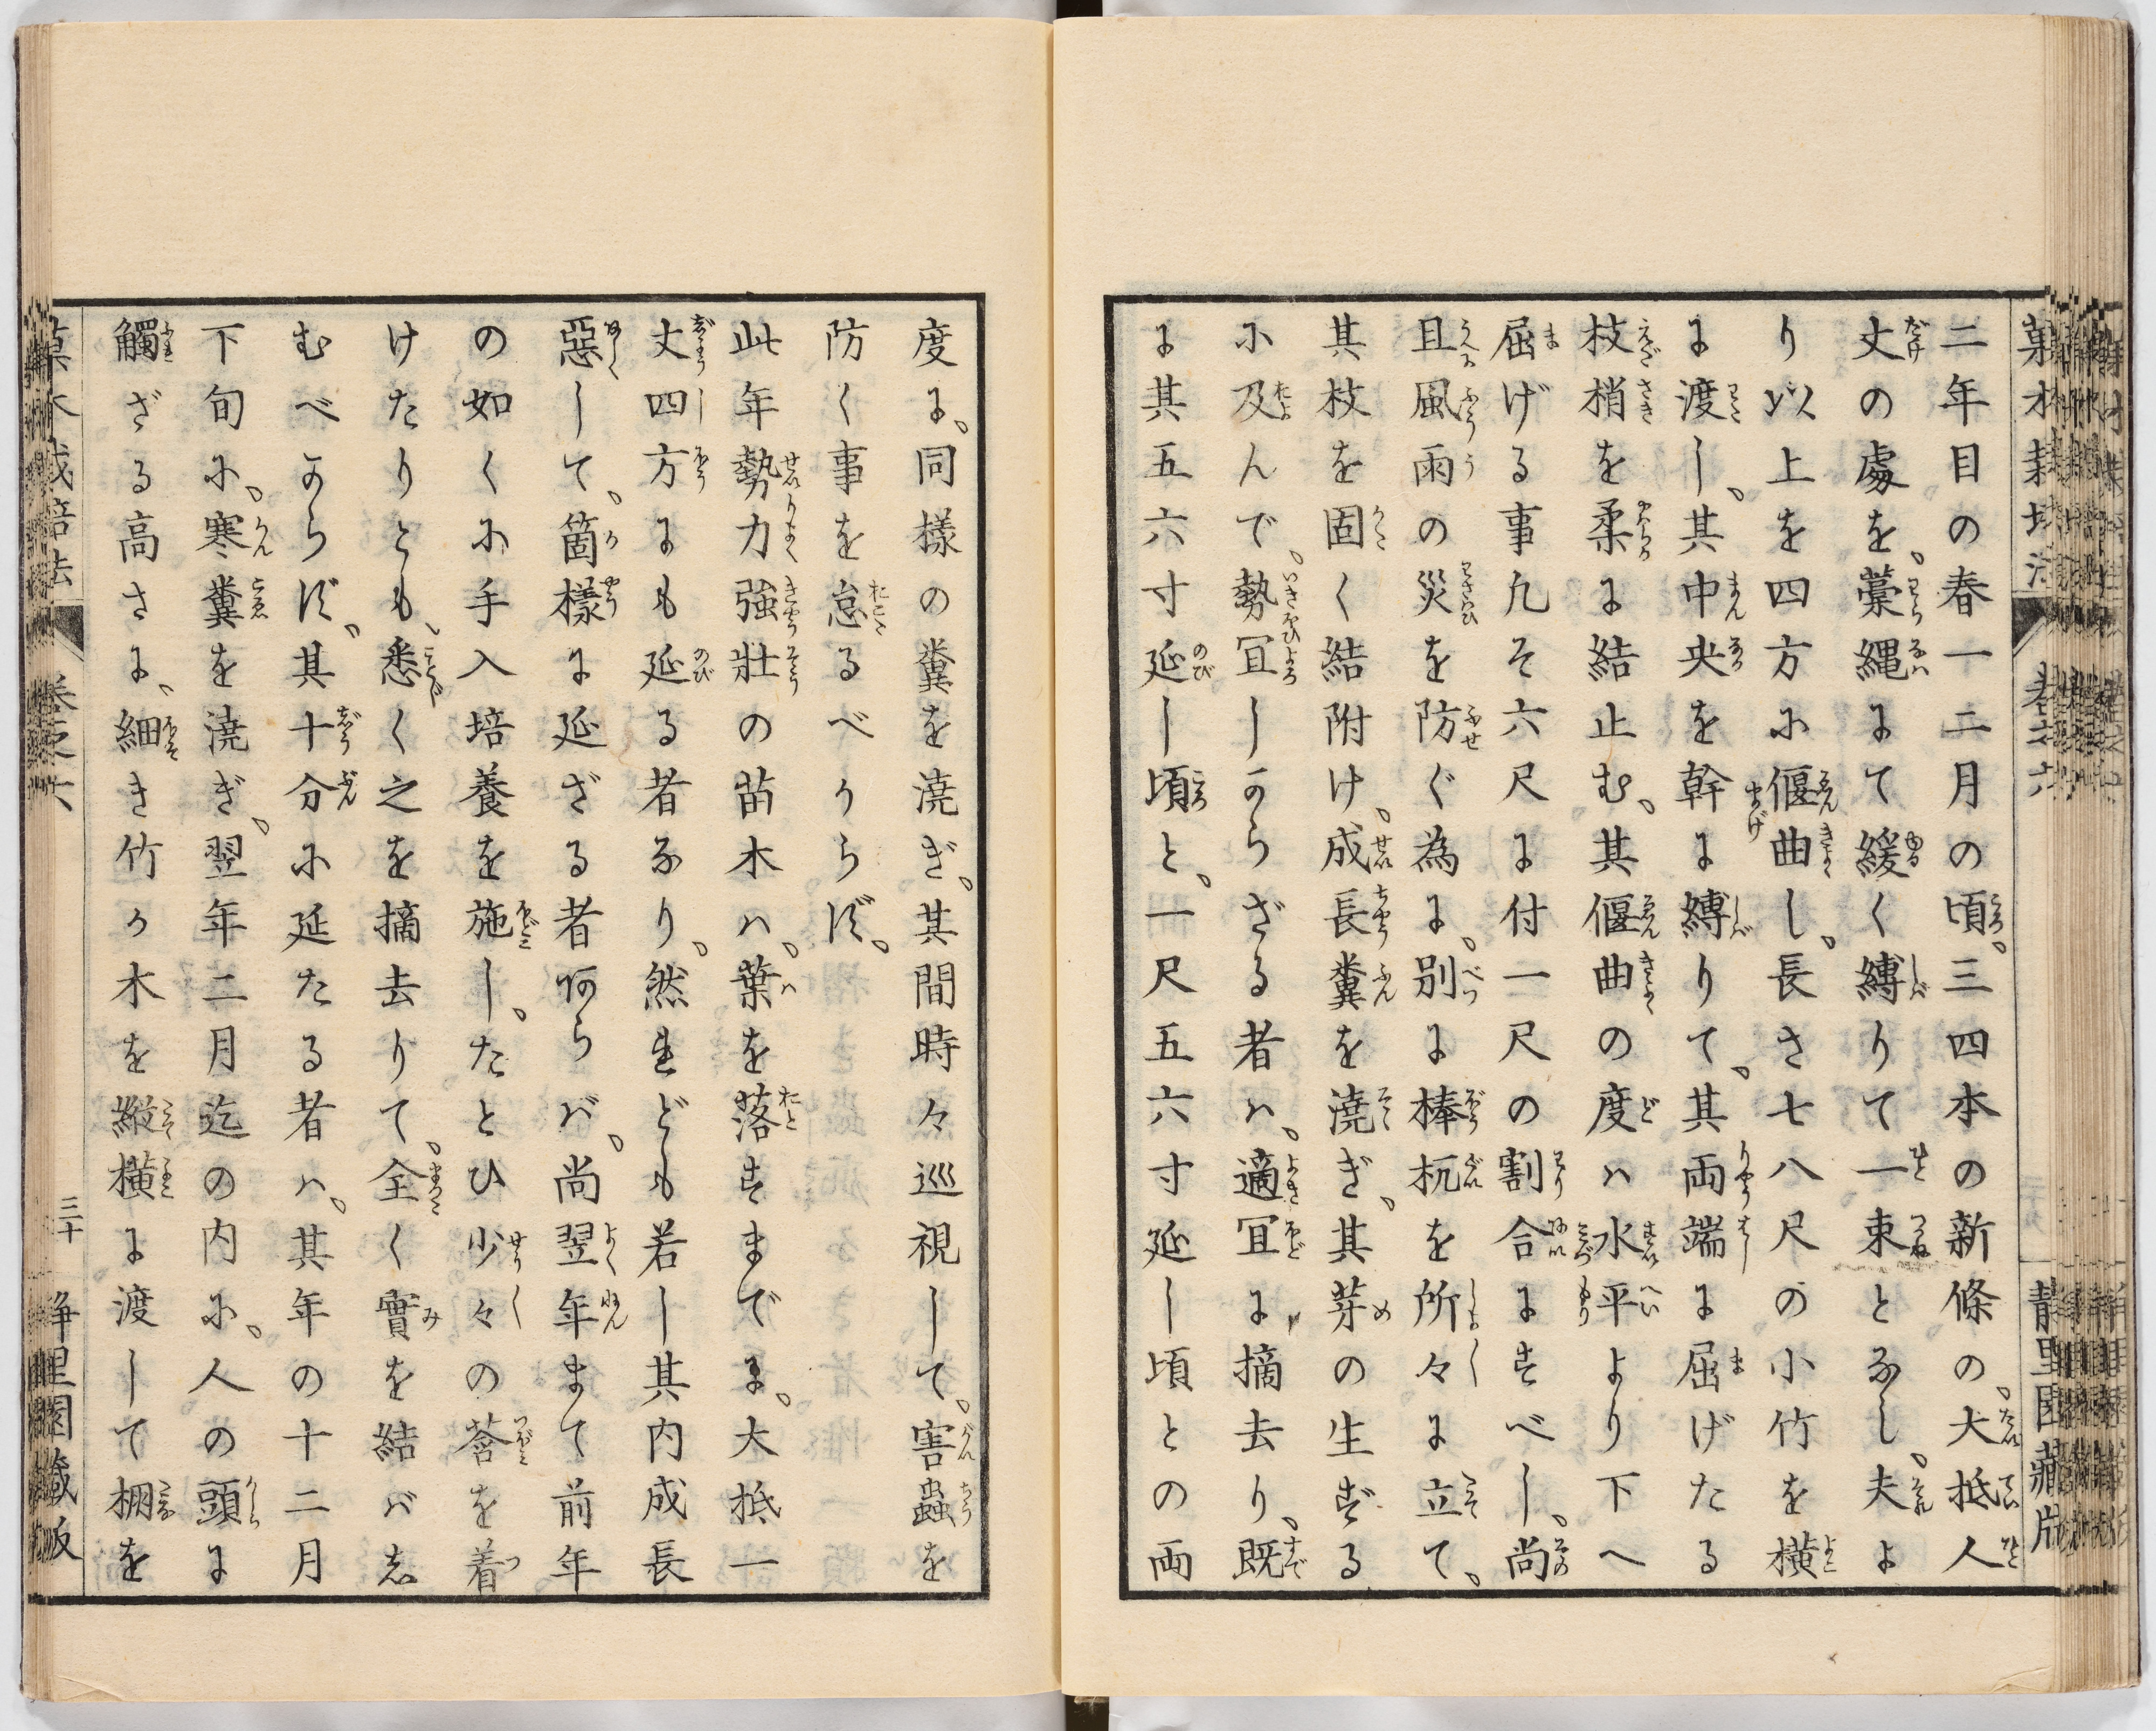 二年目の春一二月の頃、三四本の新條の、大抵人
丈の處を、藁縄にて緩く縛りて一束となし、夫よ
り以上を四方に偃曲し、長さ七八尺の小竹を横
に渡し、其中央を幹に縛りて、其両端に屈げたる
枝梢を柔に結止む、其偃曲の度ハ水平より下へ
屈げる事凡そ六尺に付一尺の割合にすべし、尚
且風雨の災を防ぐ為に、別に棒杭を所々に立て、
其枝を固く結附け、成長糞を澆ぎ、其芽の生ずる
に及んで、勢冝しからざる者ハ、適冝に摘去り、既
に其五六寸延し頃と、一尺五六寸延し頃との両
度に、同樣の糞を澆ぎ、其間時々巡視して、害蟲を
防く事を怠るべからず、
此年勢力強壯の苗木ハ、葉を落すまでに、大抵一
丈四方にも延る者なり、然れども若し其内成長
惡して、箇樣に延ざる者あらバ、尚翌年まて前年
の如くに手入培養を施し、たとひ少々の莟を着
けたりとも、悉く之を摘去りて、全く實を結バし
むべからず、其十分に延たる者ハ、其年の十二月
下旬に、寒糞を澆ぎ、翌年二月迄の内に、人の頭に
觸ざる高さに、細き竹か木を縦横に渡して棚を
菓木栽培法 卷之六 三十 靜里園藏版